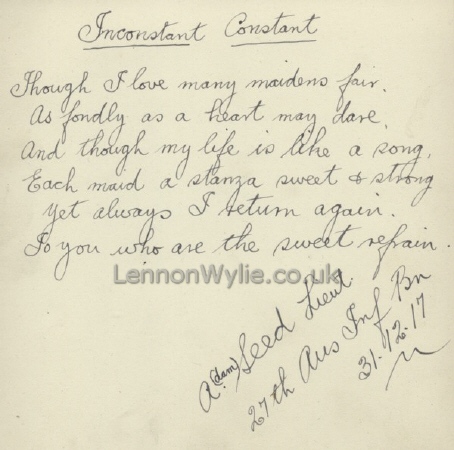 Inconstant Constant
Though I love many maidens fair.
As fondly as a heart may dare,
And though my life is like a song,
Each maid a stanza sweet & strong
Yet always I return again.
To you who are the sweet refrain.
LennonWylie.co.uk
A(dam) Seed Lieut.
27th Aus Inf Bn
31.12.17